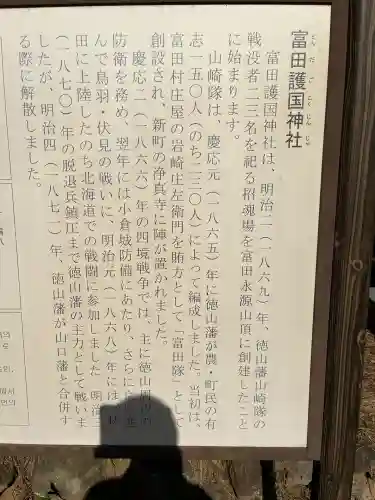 富田護国神社
とんだごこくじんじゃ
富田護国神社は、明治二（一八六九）年、徳山藩山崎隊の
戦没者二三名を祀る招魂場を富田永源山頂に創建したこと
に始まります。
山崎隊は、慶応元（一八六五）年に徳山藩が農・町民の有
志一五〇人（のち二三〇人）によって編成しました。当初は、
富田村庄屋の岩崎庄左衛門を賄方として「富田隊」として
創設され、新町の浄真寺に陣が置かれました。
慶応二（一八六六）年の四境戦争では、主に徳山周辺の
防衛を務め、翌年には小倉城防備にあたり、さらに
んで鳥羽・伏見の戦いに、明治元（一八六八）年には
田に上陸したのち北海道での戦闘に参加しました。明治三
（一八七〇）年の脱退兵鎮圧まで徳山藩の主力として戦いま
したが、明治四（一八七一）年、徳山藩が山口藩と合併す
る際に解散しました。